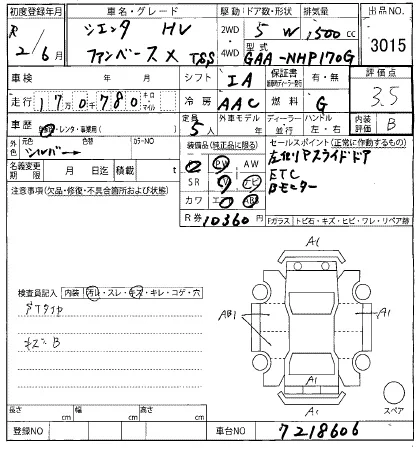 初度登録年月 車名・グレード 駆動 ドア数・形状 排気量 出品NO.
R 2/6月 シエンタ HV 2WD 5 W 1,500 cc 3015
ファンベース X TSS 4WD 型式 6AA-NHP170G
車検 年 月 シフト IA 保証書 有・無 評価点
走行 17万0千780 キロ マイル 冷房 AAC 燃料 G 3.5
車歴 自家用・レンタ・事業用( ) 定員 5人 外車モデル 年 ディーラー 並行 ハンドル 左・右 内装 B
外色 元色 シルバー 色替 カラーNO 装備品(純正品に限る) セールスポイント(正常に作動するもの)
名義変更期限 月 日迄 積載 t PW AW
左右リアスライドドア
注意事項(欠品・修復・不具合箇所および状態) SR ナビ
ETC
カワ エ AB
Bモニター
R券 10360円 Fガラス トビ石・キズ・ヒビ・ワレ・リペア跡
検査員記入 内装 汚れ・スレ・キズ・キレ・コゲ・穴
A1
キズB
AB1 A1
A1
スペア
長さ cm 幅 cm 高さ cm
登録NO 車台NO 7218606